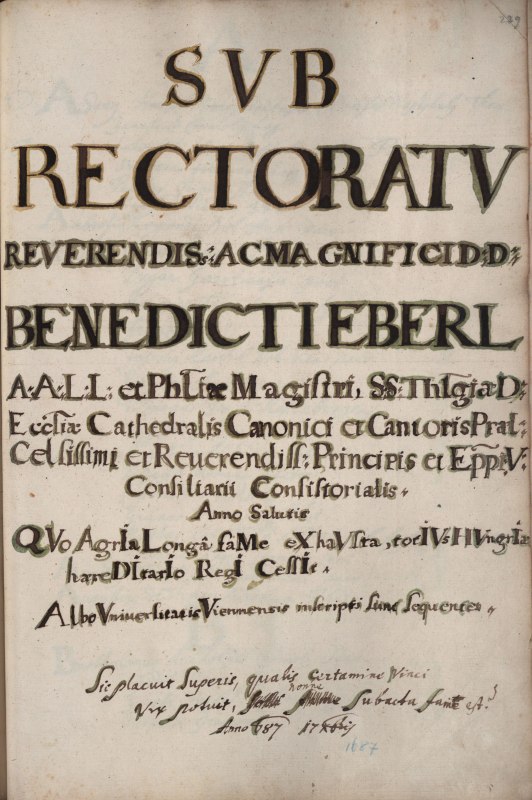 229
SVB
RECTORATV
REVERENDIS:s: AC MAGNIFICI D:D:
BENEDICTI EBERL
A:A:L:L: et Phl̃iæ Magistri, SS: Thlgĩæ D:
Eccl̃iæ Cathedralis Canonici et Cantoris Præl:
Celsissimi et Reverendiss: Principis et Ep̃pi V:
Consiliarii Consistorialis.
Anno Salutis
QVo AgrIa Longâ faMe eXhaVsta, totIVs HVngrIæ
hæreDItarIo RegI CessIt.
Albo Vniversitatis Viennensis inscripti sunt sequentes.
Sic placuit Superis, qualis certamine Vinci
nonne
Vix potuit, subacta fame est?
Anno 687
1687